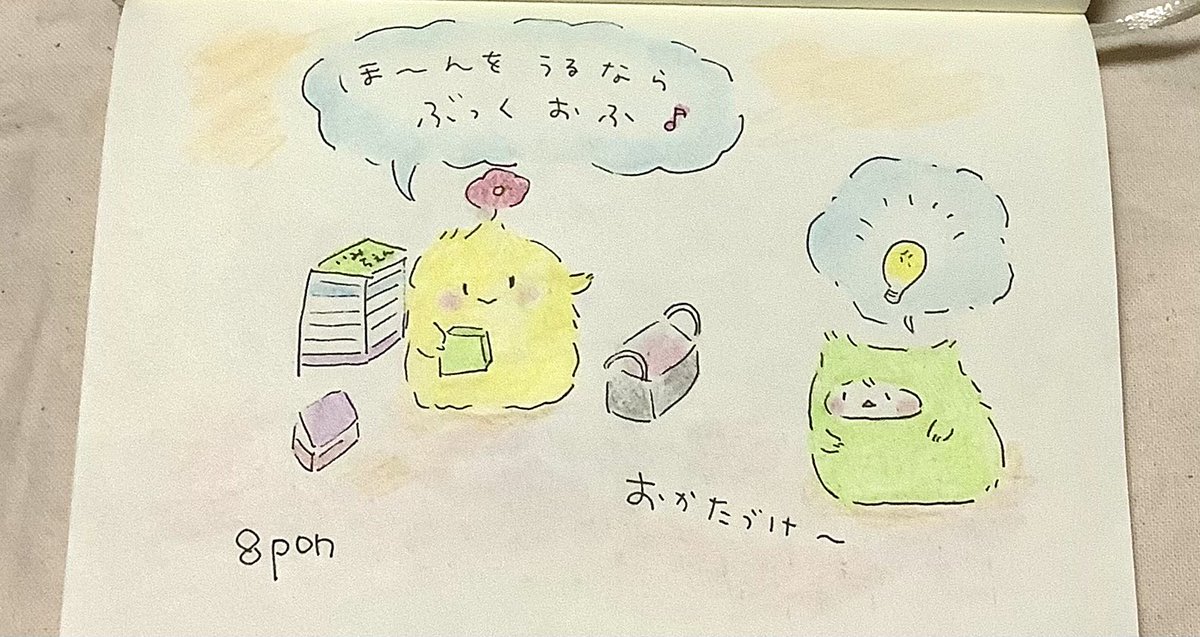 ほ〜んを うるなら
ぶっく おふ♪
いみちぇん
おかたづけ〜
8pon